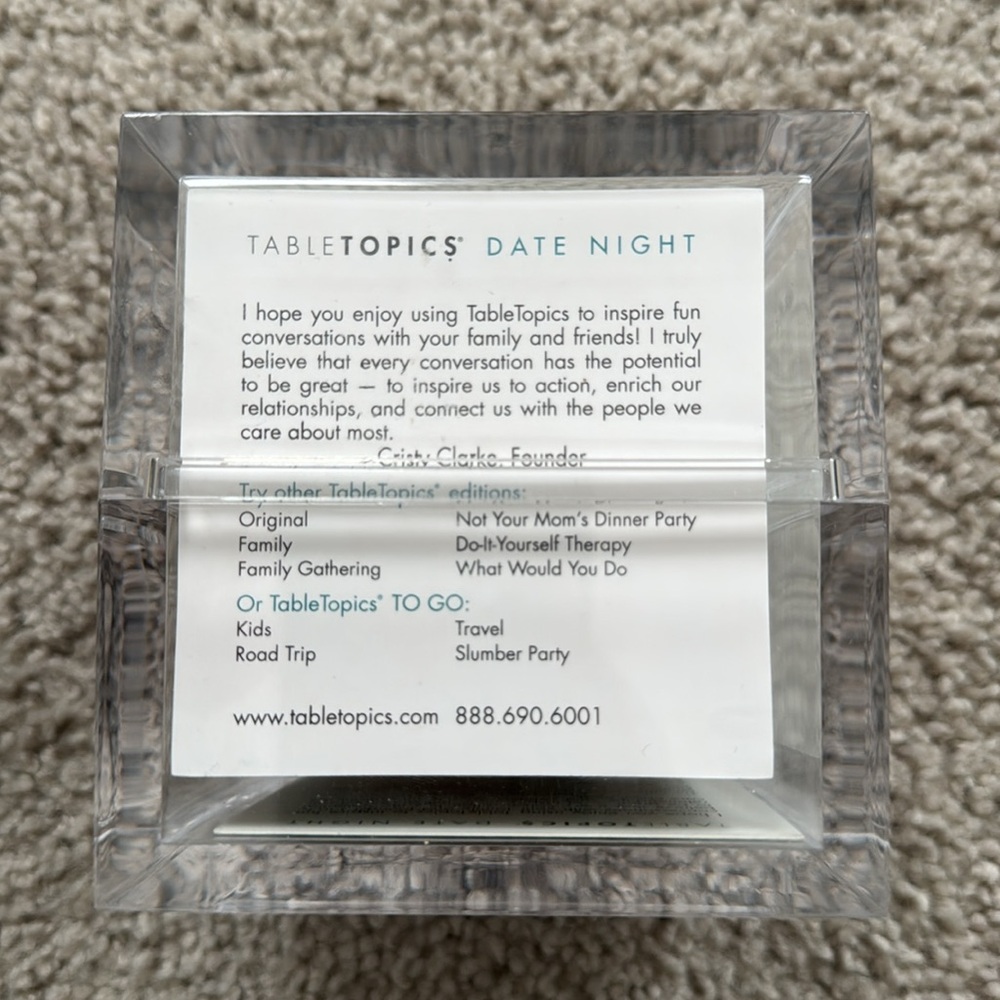 TABLETOPICS® DATE NIGHT
I hope you enjoy using TableTopics to inspire fun
conversations with your family and friends! I truly
believe that every conversation has the potential
to be great — to inspire us to action, enrich our
relationships, and connect us with the people we
care about most.
– Cristy Clarke, Founder
Try other TableTopics® editions:
Original Not Your Mom's Dinner Party
Family Do-It-Yourself Therapy
Family Gathering What Would You Do
Or TableTopics® TO GO:
Kids Travel
Road Trip Slumber Party
www.tabletopics.com 888.690.6001
TABLETOPICS DATE NIGHT